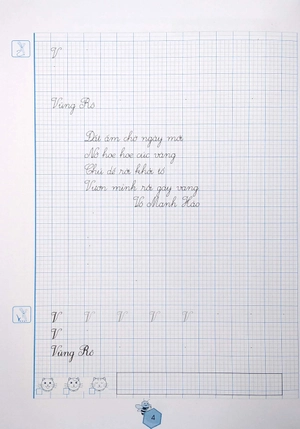 V
Vũng Rô
Đất ấm cho ngày mới
Nở hoe hoe cúc vàng
Chú dế rời khỏi tổ
Vươn mình rồi gáy vang
Võ Mạnh Hảo
V V V V V
V
Vũng Rô
4